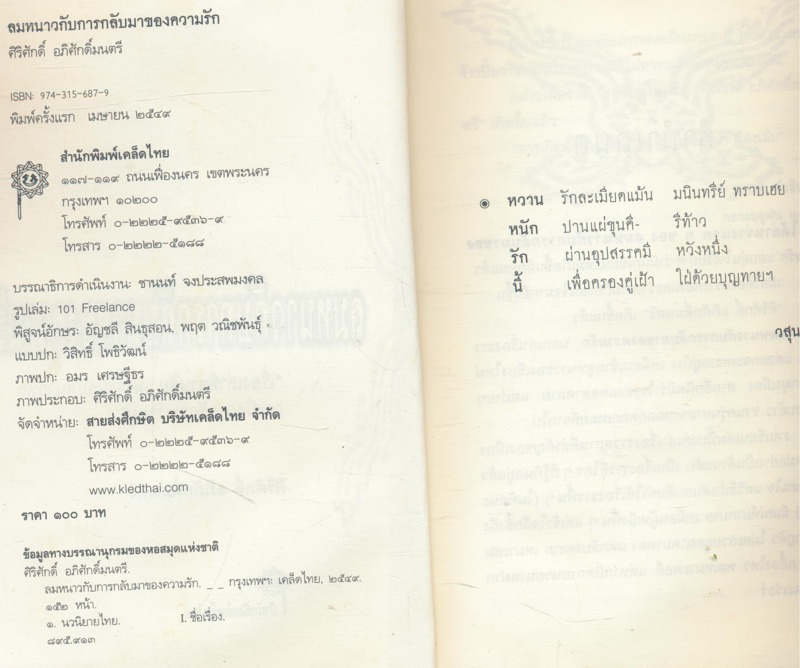 ลมหนาวกับการกลับมาของความรัก
ศิริศักดิ์ อภิศักดิ์มนตรี
ISBN: 974-315-687-9
พิมพ์ครั้งแรก เมษายน ๒๕๔๙
สำนักพิมพ์เคล็ดไทย
๑๑๗-๑๑๙ ถนนเฟื่องนคร เขตพระนคร
กรุงเทพฯ ๑๐๒๐๐
โทรศัพท์ ๐-๒๒๒๕-๙๕๓๖-๙
โทรสาร ๐-๒๒๒๒-๕๑๘๘
บรรณาธิการดำเนินงาน: ชานนท์ จงประสพมงคล
รูปเล่ม: 101 Freelance
พิสูจน์อักษร: อัญชลี สินธุสอน, พฤต วณิชพันธุ์
แบบปก: วิสิทธิ์ โพธิวัฒน์
ภาพปก: อมร เศรษฐีธร
ภาพประกอบ: ศิริศักดิ์ อภิศักดิ์มนตรี
จัดจำหน่าย: สายส่งศึกษิต บริษัทเคล็ดไทย จำกัด
โทรศัพท์ ๐-๒๒๒๕-๙๕๓๖-๙
โทรสาร ๐-๒๒๒๒-๕๑๘๘
www.kledthai.com
ราคา ๑๐๐ บาท
ข้อมูลทางบรรณานุกรมของหอสมุดแห่งชาติ
ศิริศักดิ์ อภิศักดิ์มนตรี.
ลมหนาวกับการกลับมาของความรัก. _ _ กรุงเทพฯ: เคล็ดไทย, ๒๕๔๙.
๑๕๒ หน้า.
๑. นวนิยายไทย. I. ชื่อเรื่อง.
๘๙๕.๙๑๓
หวาน รักละเมียดแม้น มนินทรีย์ ทราบเฮย
หนัก ปานแผ่ขุนคี- รีท้าว
รัก ผ่านอุปสรรคมี หวังหนึ่ง
นี้ เพื่อครองคู่เฝ้า ใฝ่ด้วยบุญทายฯ
วสุน